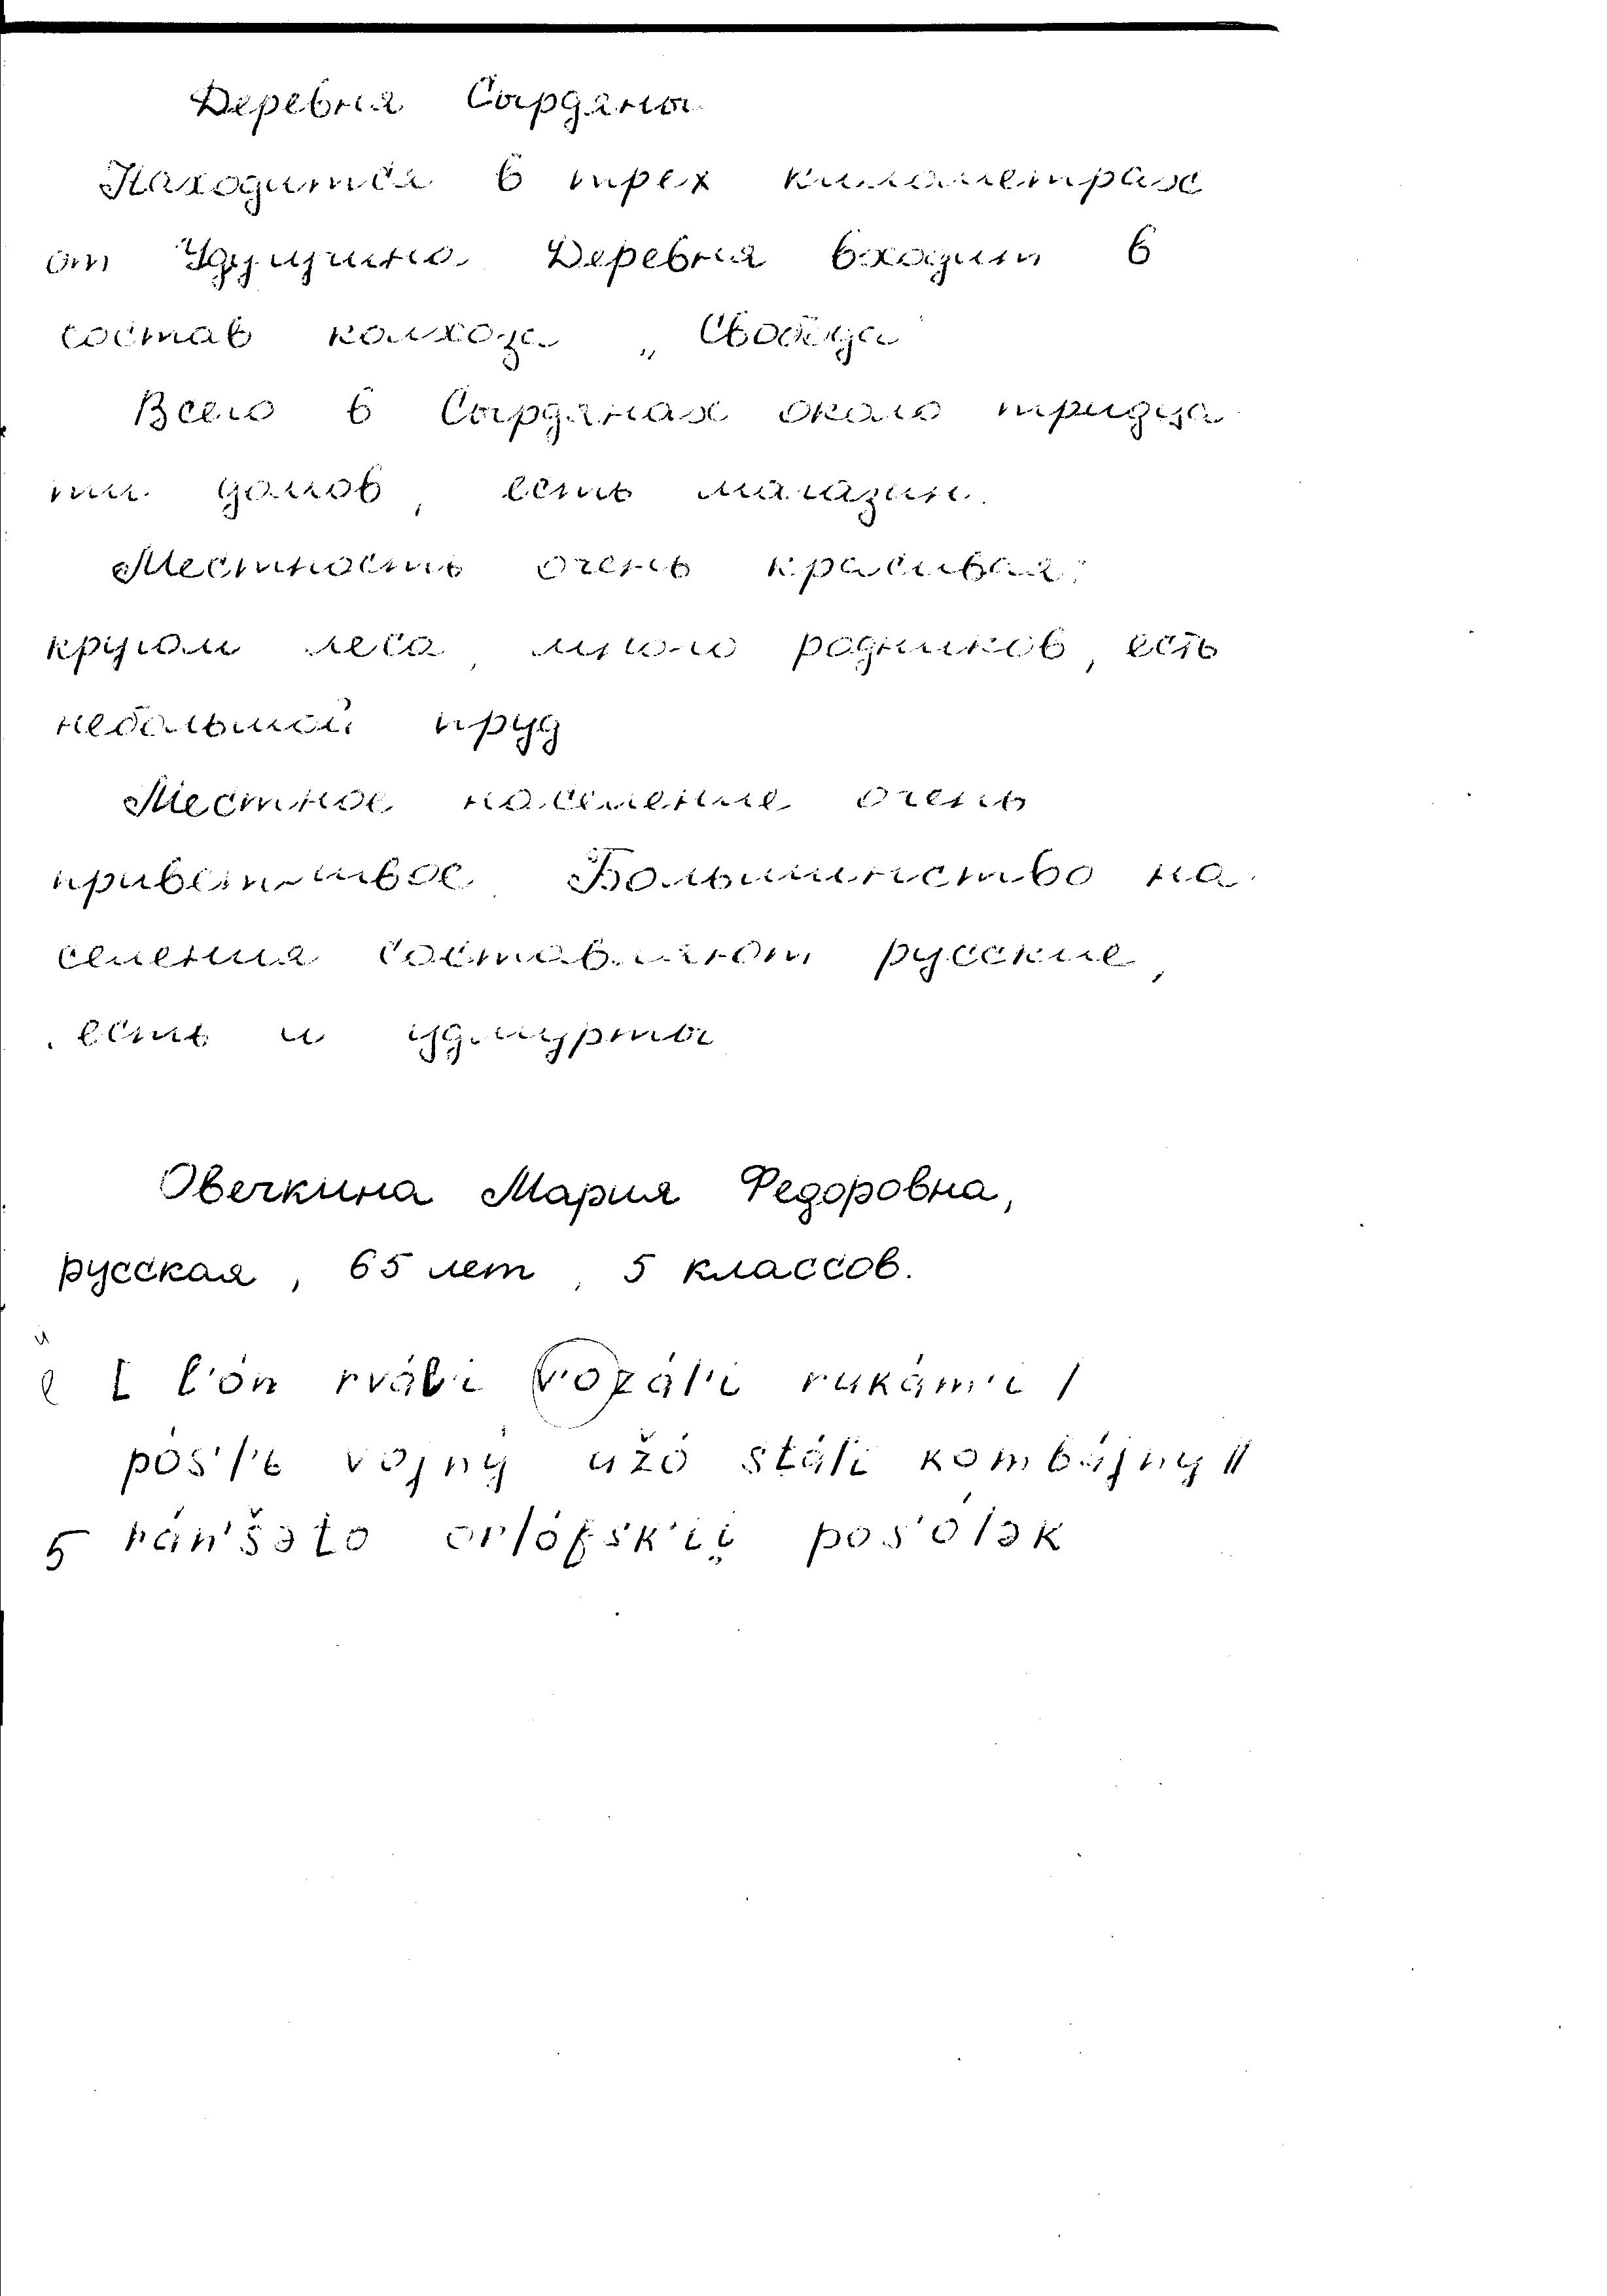 Деревня Сырдяны
Находится в трех километрах
от Удугучино. Деревня входит в
состав колхоза „Свобода"
Всего в Сырдянах около тридца
ти домов, есть магазин.
Местность очень красивая:
кругом леса, много родников, есть
небольшой пруд
Местное население очень
приветливое. Большинство на
селения составляют русские,
есть и удмурты
Овечкина Мария Федоровна,
русская, 65 лет, 5 классов.
и
е [ l'ón rvál'i v'ozál'i rukám'i /
pós'l'ь vojný užó stál'i kombájny //
5 rán'šəto orlófsk'ii̯ pos'ólək